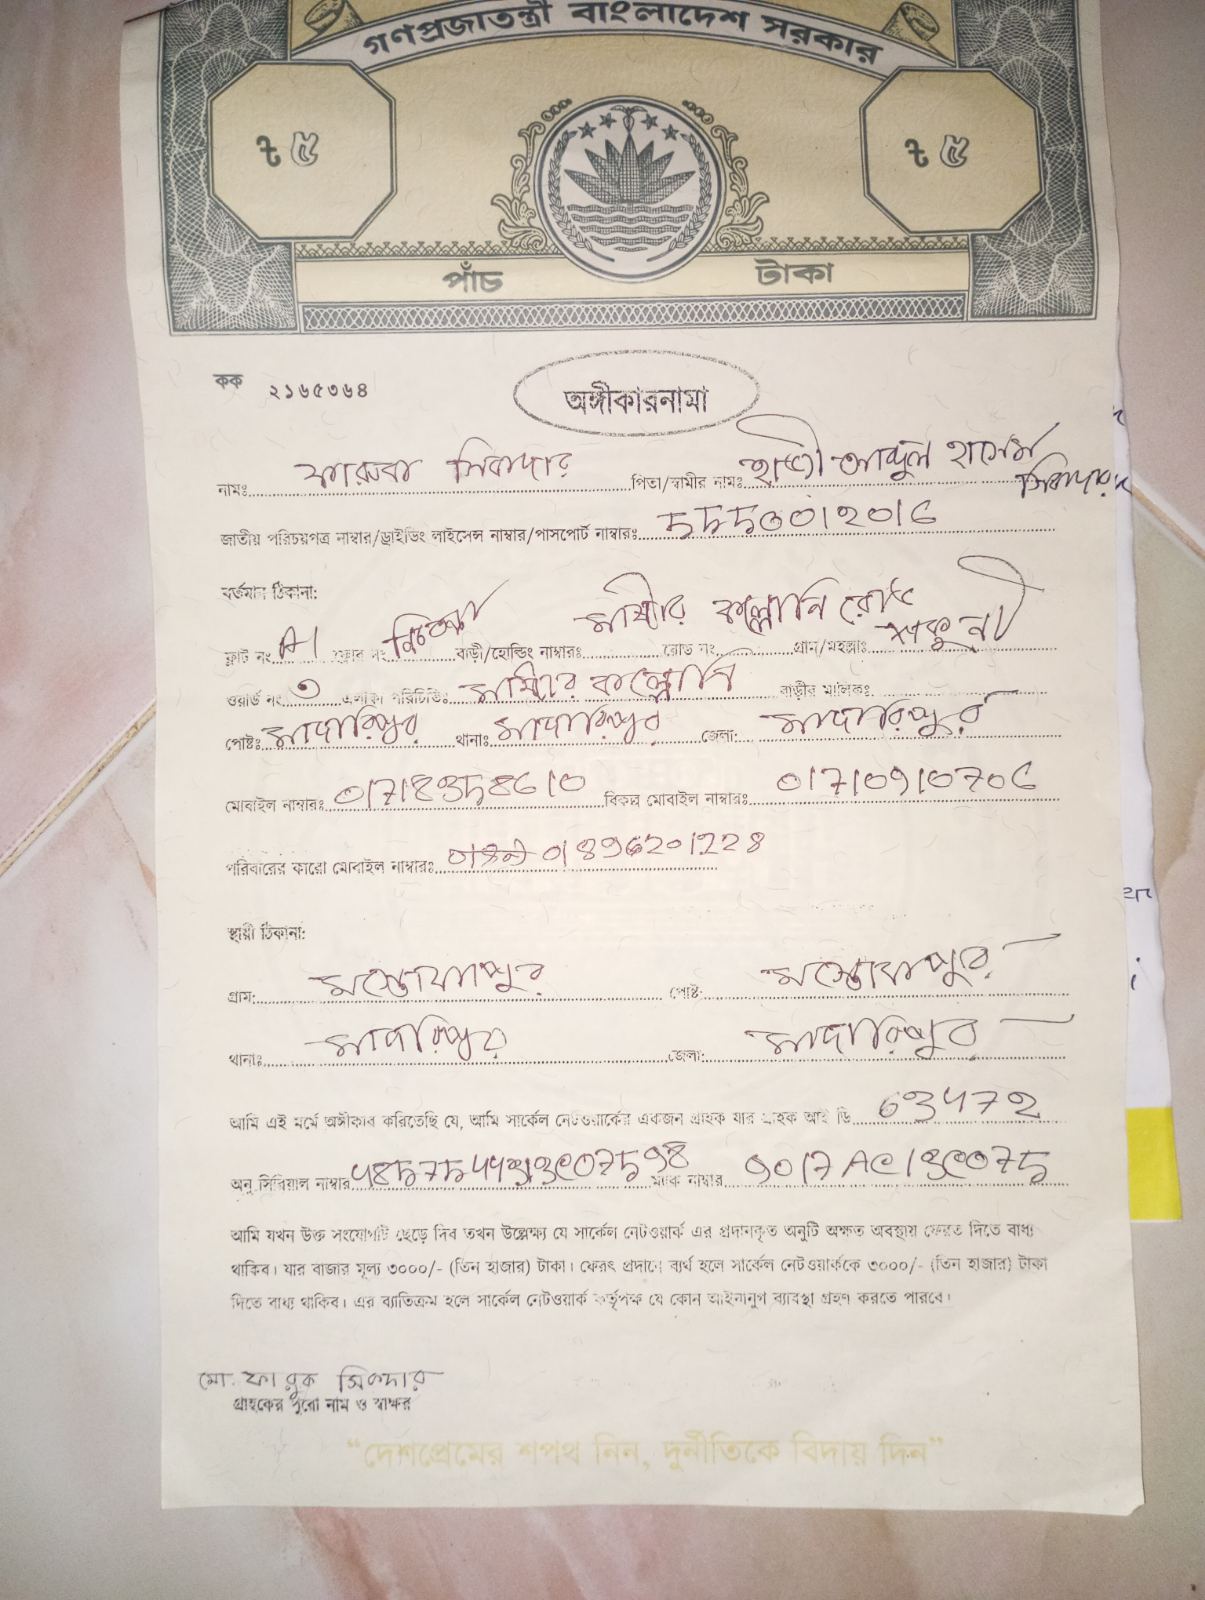 গণপ্রজাতন্ত্রী বাংলাদেশ সরকার
৳ ৫ ৳ ৫
পাঁচ টাকা
কক ২১৬৫৩৬৪
অঙ্গীকারনামা
নামঃ ফারুক সিকদার পিতা/স্বামীর নামঃ হাজী আব্দুল হাসেম
সিকদার
জাতীয় পরিচয়পত্র নাম্বার/ড্রাইভিং লাইসেন্স নাম্বার/পাসপোর্ট নাম্বারঃ
বর্তমান ঠিকানা:
ফ্লাট নং A1 ফ্লোর নং নিচতলা বাড়ী/হোল্ডিং নাম্বারঃ মাষ্টার কল্লোনি রোড রোড নং গ্রাম/মহল্লাঃ শকুনী
ওয়ার্ড নং ৩ এলাকা পরিচিতিঃ মাষ্টার কল্লোনি বাড়ীর মালিকঃ
পোষ্টঃ মাদারিপুর থানাঃ মাদারিপুর জেলা: মাদারিপুর
মোবাইল নাম্বারঃ বিকল্প মোবাইল নাম্বারঃ
পরিবারের কারো মোবাইল নাম্বারঃ
স্থায়ী ঠিকানা:
গ্রাম: মস্তোফাপুর পোষ্ট: মস্তোফাপুর
থানাঃ মাদারিপুর জেলা: মাদারিপুর
আমি এই মর্মে অঙ্গীকার করিতেছি যে, আমি সার্কেল নেটওয়ার্কের একজন গ্রাহক যার গ্রাহক আই ডি
অনু সিরিয়াল নাম্বার ম্যাক নাম্বার
আমি যখন উক্ত সংযোগটি ছেড়ে দিব তখন উল্লেক্ষ্য যে সার্কেল নেটওয়ার্ক এর প্রদানকৃত অনুটি অক্ষত অবস্থায় ফেরত দিতে বাধ্য
থাকিব। যার বাজার মূল্য ৩০০০/- (তিন হাজার) টাকা। ফেরৎ প্রদানে ব্যর্থ হলে সার্কেল নেটওয়ার্ককে ৩০০০/- (তিন হাজার) টাকা
দিতে বাধ্য থাকিব। এর ব্যাতিক্রম হলে সার্কেল নেটওয়ার্ক কর্তৃপক্ষ যে কোন আইনানুগ ব্যাবস্থা গ্রহণ করতে পারবে।
মো. ফারুক সিকদার
গ্রাহকের পুরো নাম ও স্বাক্ষর
“দেশপ্রেমের শপথ নিন, দুর্নীতিকে বিদায় দিন”